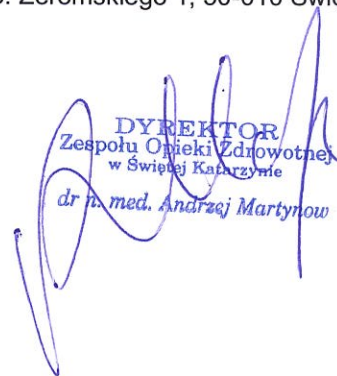 Żeromskiego 1,
DYREKTOR
Zespołu Opieki Zdrowotnej
w Świętej Katarzynie
dr n. med. Andrzej Martynow